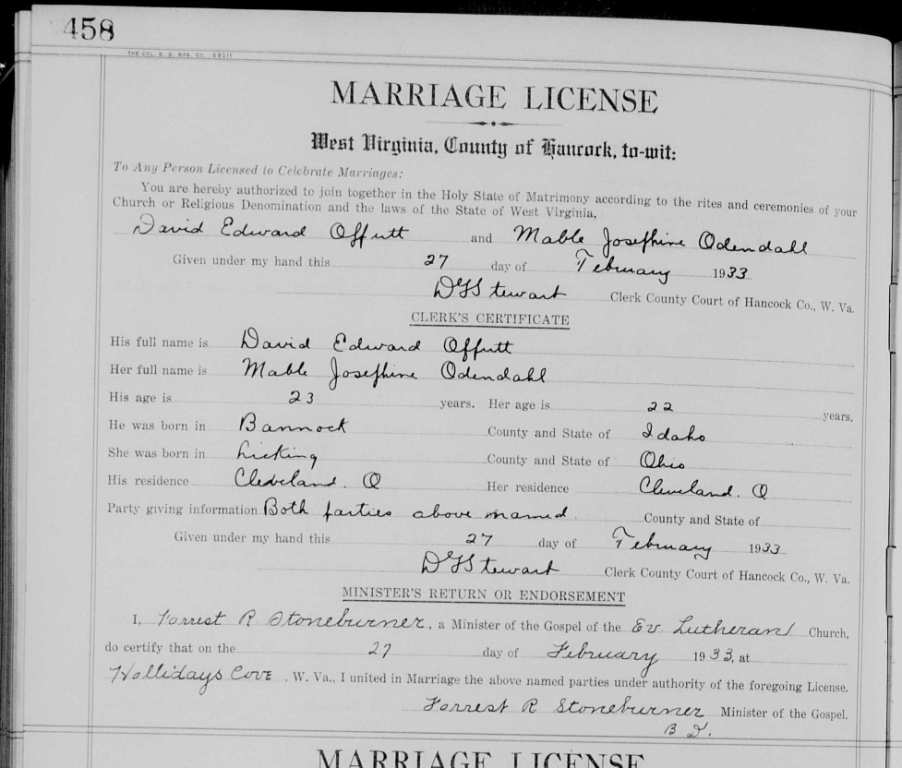 458
MARRIAGE LICENSE
West Virginia, County of Hancock, to-wit:
To Any Person Licensed to Celebrate Marriages:
You are hereby authorized to join together in the Holy State of Matrimony according to the rites and ceremonies of your
Church or Religious Denomination and the laws of the State of West Virginia,
David Edward Offutt and Mable Josephine Odendall
Given under my hand this 27 day of February 1933
D G Stewart Clerk County Court of Hancock Co., W. Va.
CLERK'S CERTIFICATE
His full name is David Edward Offutt
Her full name is Mable Josephine Odendahl
His age is 23 years. Her age is 22 years.
He was born in Bannock County and State of Idaho
She was born in Licking County and State of Ohio
His residence Cleveland. O Her residence Cleveland. O
Party giving information Both parties above named. County and State of
Given under my hand this 27 day of February 1933
D G Stewart Clerk County Court of Hancock Co., W. Va.
MINISTER'S RETURN OR ENDORSEMENT
I, Forrest R Stoneburner, a Minister of the Gospel of the Ev. Lutheran Church,
do certify that on the 27 day of February 1933, at
Hollidays Cove, W. Va., I united in Marriage the above named parties under authority of the foregoing License.
Forrest R Stoneburner Minister of the Gospel.
B D.
MARRIAGE LICENSE